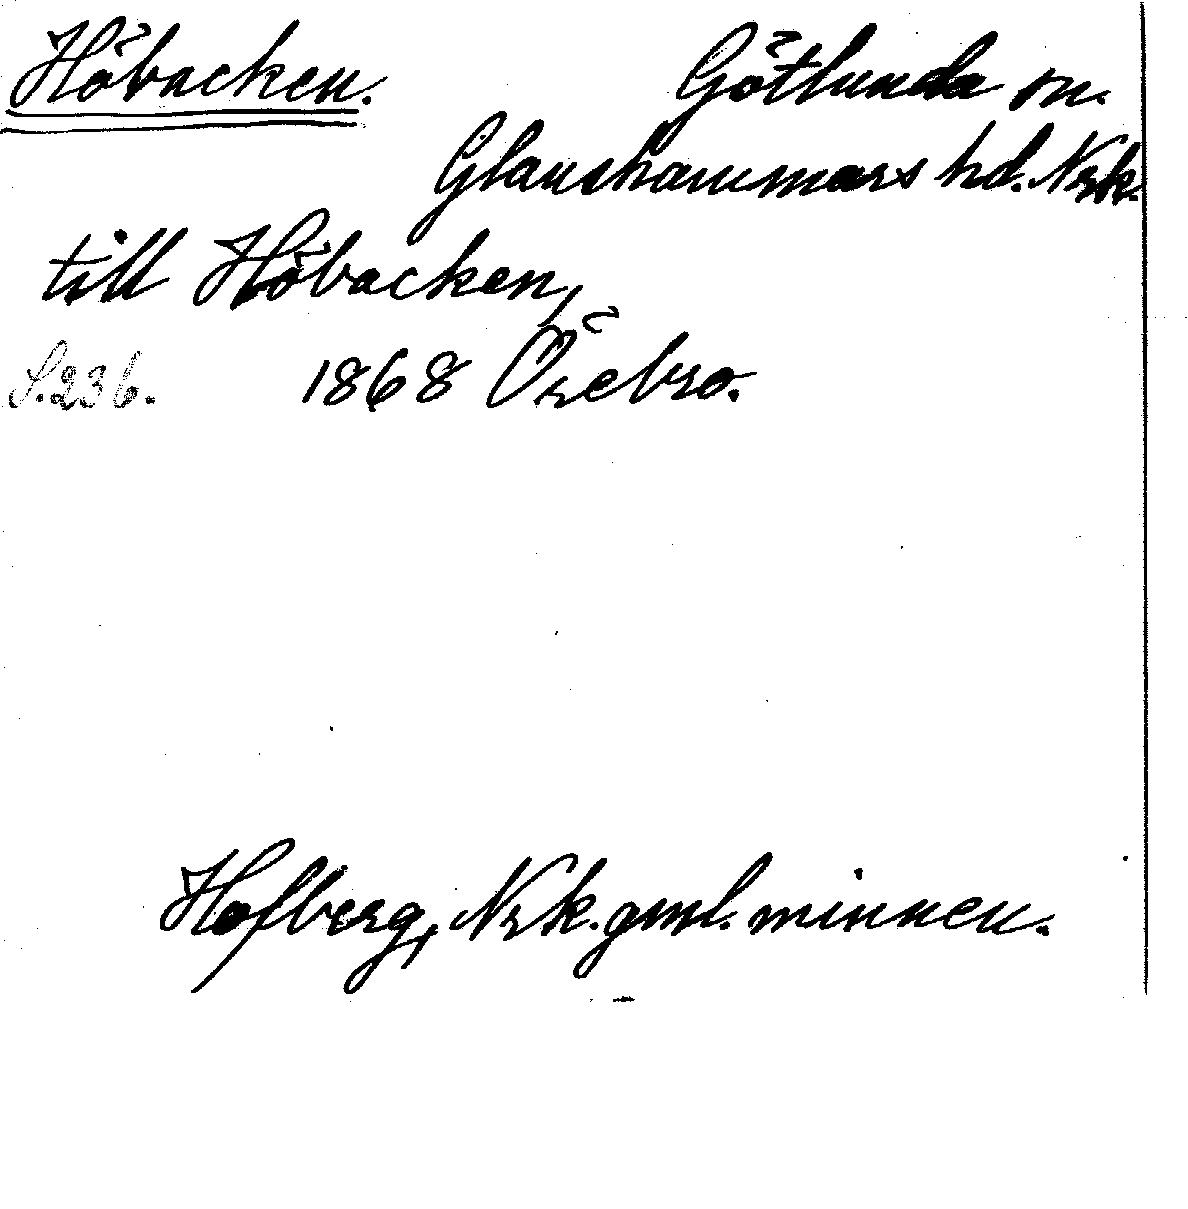 Höbacken. Götlunda sn.
Glanshammars hd. Nrk.
till Höbacken,
S.236. 1868 Örebro.
Hofberg, Nrk. gml. minnen.